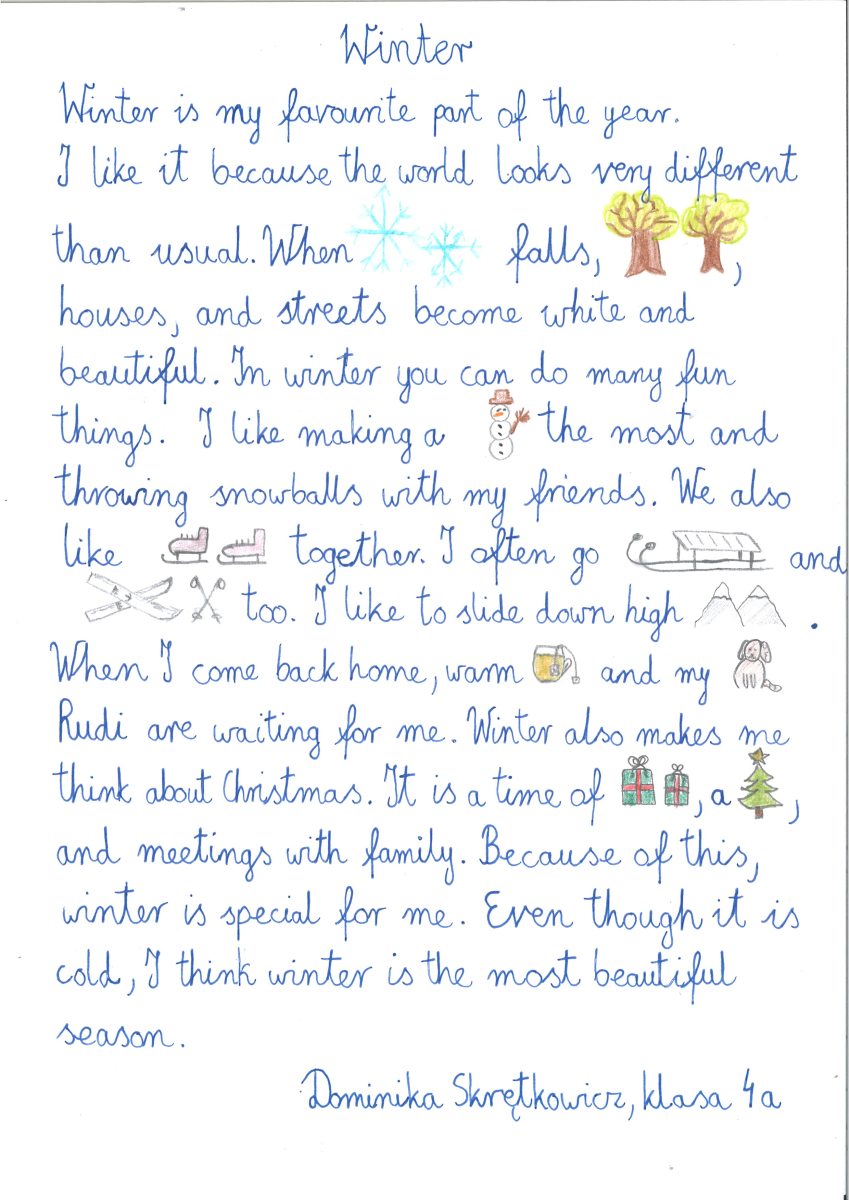 Winter
Winter is my favourite part of the year.
I like it because the world looks very different
than usual. When falls, ,
houses, and streets become white and
beautiful. In winter you can do many fun
things. I like making a the most and
throwing snowballs with my friends. We also
like together. I often go and
too. I like to slide down high .
When I come back home, warm and my
Rudi are waiting for me. Winter also makes me
think about Christmas. It is a time of , a ,
and meetings with family. Because of this,
winter is special for me. Even though it is
cold, I think winter is the most beautiful
season.
Dominika Skrętkowicz, klasa 4a